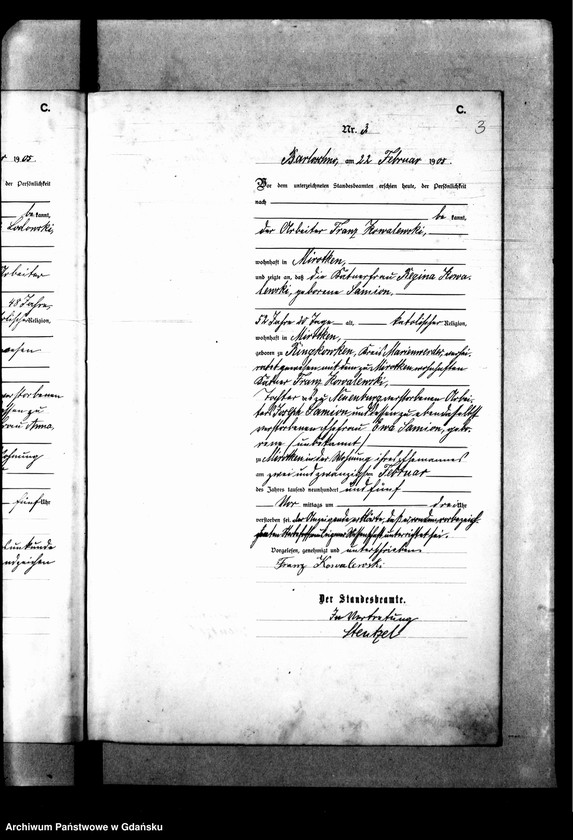 C.
r 1905.
der Persönlichkeit
be kannt,
Lodowski,
Arbeiter
48 Jahre,
Religion,
verstorbenen
zu
Anna,
Wohnung
fünf Uhr
C.
3
Nr. 3
am 22 Februar 1905.
Vor dem unterzeichneten Standesbeamten erschien heute, der Persönlichkeit
nach
be kannt,
der Arbeiter Franz Kowalewski,
wohnhaft in Mirotken,
und zeigte an, daß die Käthnerfrau Regina Kowa-
lewski, geborene Samion,
52 Jahre 20 Tage alt, katolischer Religion,
wohnhaft in Mirotken,
geboren zu Ringkowken, Kreis Marienwerder, verhei-
rathet gewesen mit dem zu Mirotken wohnhaften
Käthner Franz Kowalewski,
Tochter des zu Neuenburg verstorbenen Arbei-
ters Joseph Samion und dessen zu ebendaselbst
verstorbenen Ehefrau Eva Samion, gebo-
rene (unbekannt)
zu Mirotken in der Wohnung ihres Ehemannes
am zwei und zwanzigsten Februar
des Jahres tausend neunhundert und fünf
Vor mittags um drei Uhr
verstorben sei. Der Anzeigende erklärte, daß er von dem vorbezeich-
neten Sterbefall aus eigener Wissenschaft unterrichtet sei.
Vorgelesen, genehmigt und unterschrieben
Franz Kowalewski
Der Standesbeamte.
In Vertretung
Stentzel
Archiwum Państwowe w Gdańsku